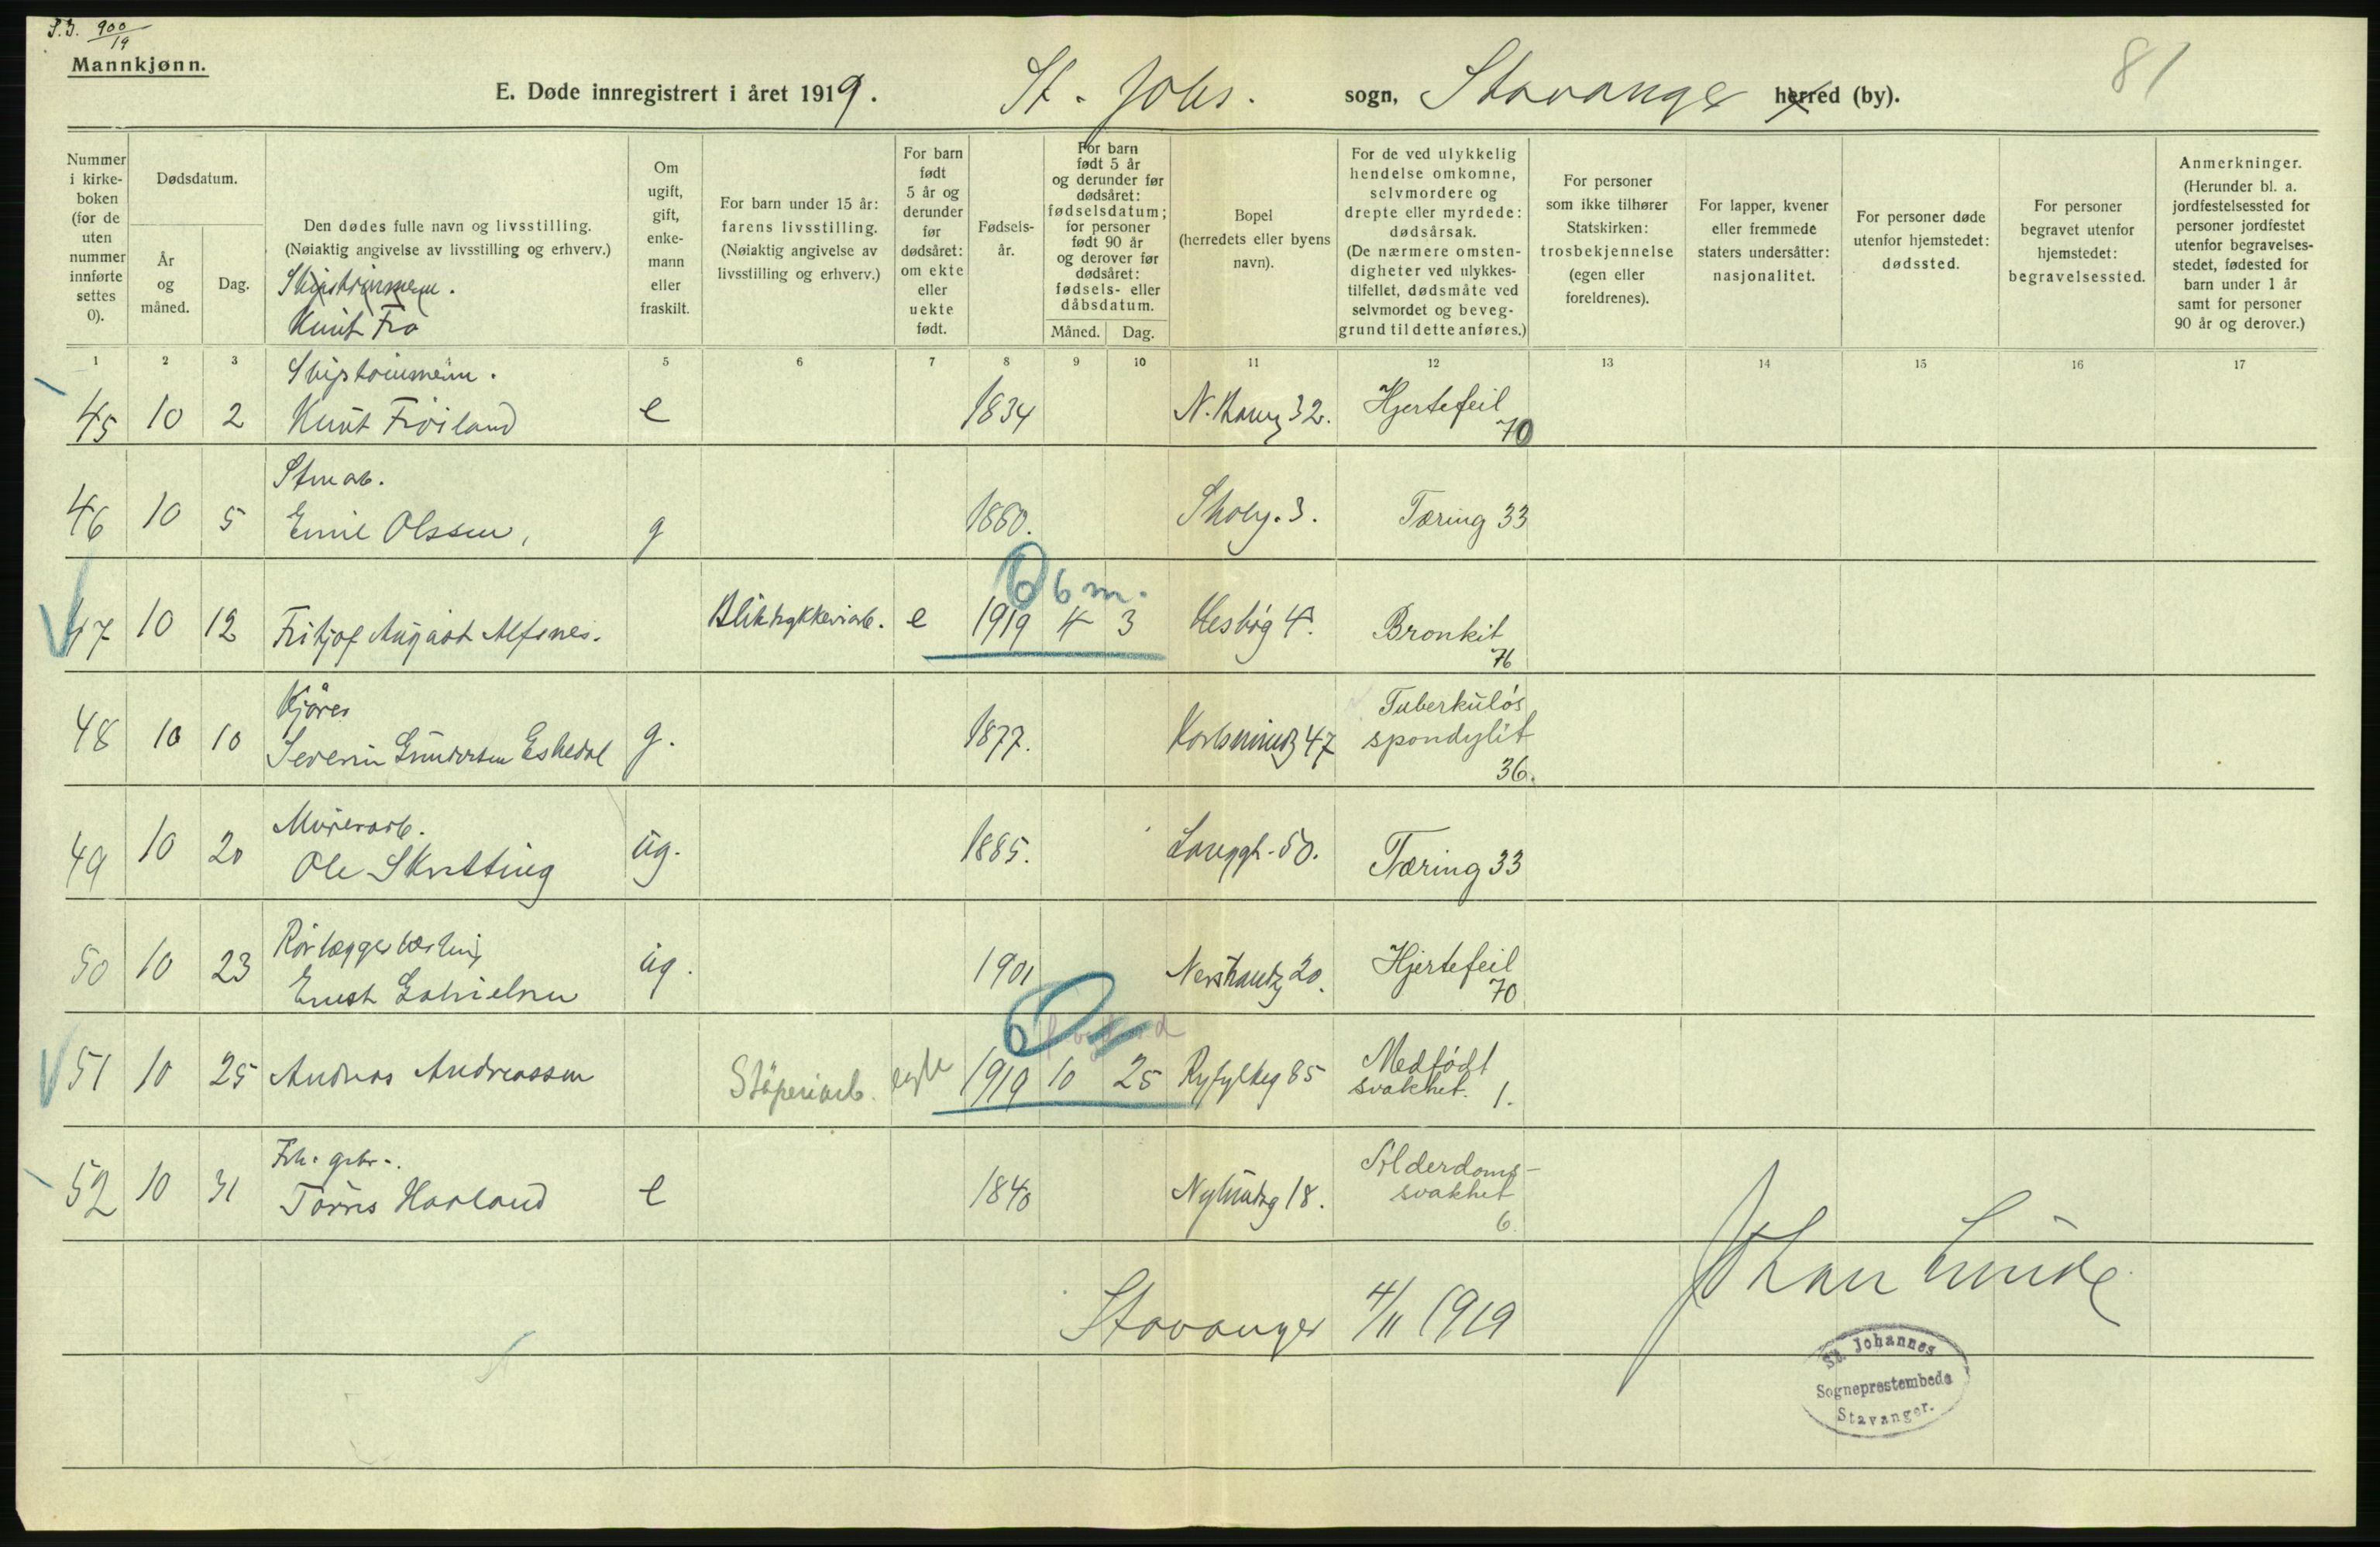 S.J. 900/19
Mannkjønn.
81
E. Døde innregistrert i året 1919. St. Johs. sogn, Stavanger herred (by).
Nummer i kirkeboken (for de uten nummer innførte settes 0).
Dødsdatum.
År og måned.
Dag.
Den dødes fulle navn og livsstilling.
(Nøiaktig angivelse av livsstilling og erhverv.)
Knut Frø
Om ugift, gift, enkemann eller fraskilt.
For barn under 15 år: farens livsstilling. (Nøiaktig angivelse av livsstilling og erhverv.)
For barn født 5 år og derunder før dødsåret: om ekte eller uekte født.
Fødselsår.
For barn født 5 år og derunder før dødsåret: fødselsdatum; for personer født 90 år og derover før dødsåret: fødsels- eller dåbsdatum.
Måned. Dag.
Bopel (herredets eller byens navn).
For de ved ulykkelig hendelse omkomne, selvmordere og drepte eller myrdede: dødsårsak. (De nærmere omstendigheter ved ulykkestilfellet, dødsmåte ved selvmordet og beveggrund til dette anføres.)
For personer som ikke tilhører Statskirken: trosbekjennelse (egen eller foreldrenes).
For lapper, kvener eller fremmede staters undersåtter: nasjonalitet.
For personer døde utenfor hjemstedet: dødssted.
For personer begravet utenfor hjemstedet: begravelsessted.
Anmerkninger. (Herunder bl. a. jordfestelsessted for personer jordfestet utenfor begravelsesstedet, fødested for barn under 1 år samt for personer 90 år og derover.)
1 2 3 4 5 6 7 8 9 10 11 12 13 14 15 16 17
Skipstømmerm.
45 10 2 Knut Frøiland e 1834 32. Hjertefeil 70
46 10 5 Emil Olssen, g 1880. Skolg. 3. Tæring 33
6 m.
47 10 12 Fritjof August Alfsnes. Bliktrykkeriarb. e 1919 4 3 Hesbøg 4. Bronkit 76
Kjører
48 10 10 Severin Gundersen Eskedal g. 1877. Karlsmindg 47 Tuberkuløs spondylit 36.
Murerarb.
49 10 20 Ole Skretting ug. 1885. 50. Tæring 33
Rørlæggerlærling
50 10 23 Ernst Gabrielsen ug. 1901 Nerstrandg 20. Hjertefeil 70
51 10 25 Andreas Andreassen Støperiarb. egte 1919 10 25 Ryfylkeg 85 Medfødt svakhet. 1.
52 10 31 Tørris Haaland e 1840 Nylundsg 18. Alderdoms-svakhet 6.
Stavanger 4/11 1919
Johan Lunde
St. Johannes
Sogneprestembede
Stavanger.